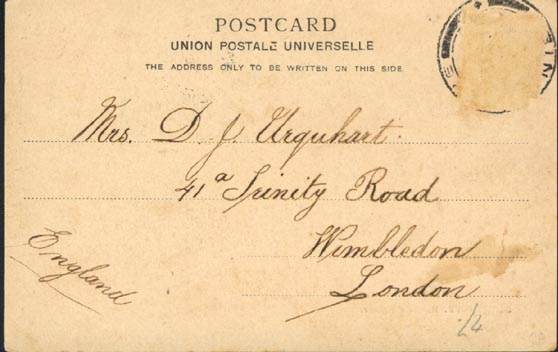 POSTCARD
UNION POSTALE UNIVERSELLE
THE ADDRESS ONLY TO BE WRITTEN ON THIS SIDE
Mrs. D. J. Urquhart.
41a Trinity Road
Wimbledon
London
England